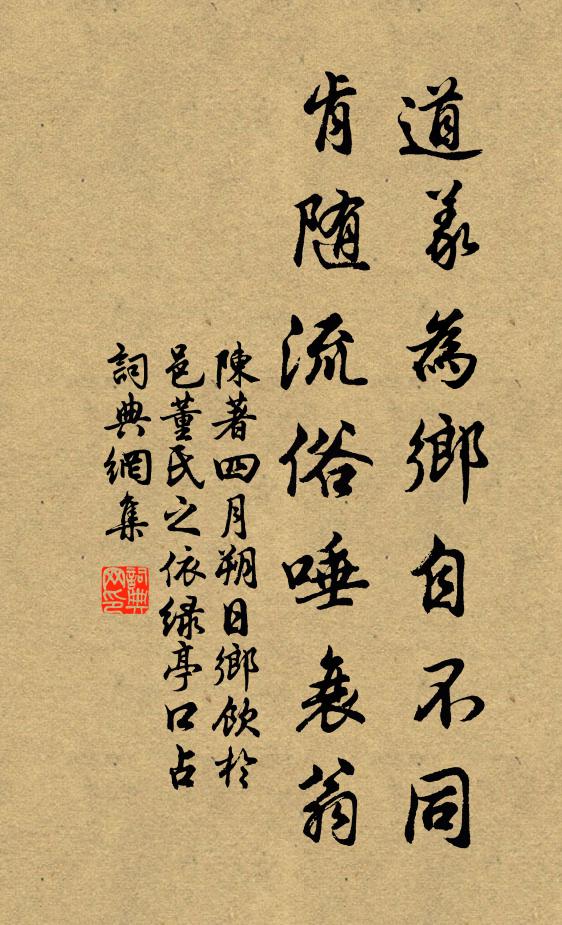 道義為鄉自不同
肯随流俗唾衰翁
陳著四月朔日鄉飲於
邑董氏之依緑亭口占
詞典網集
詞典
网印